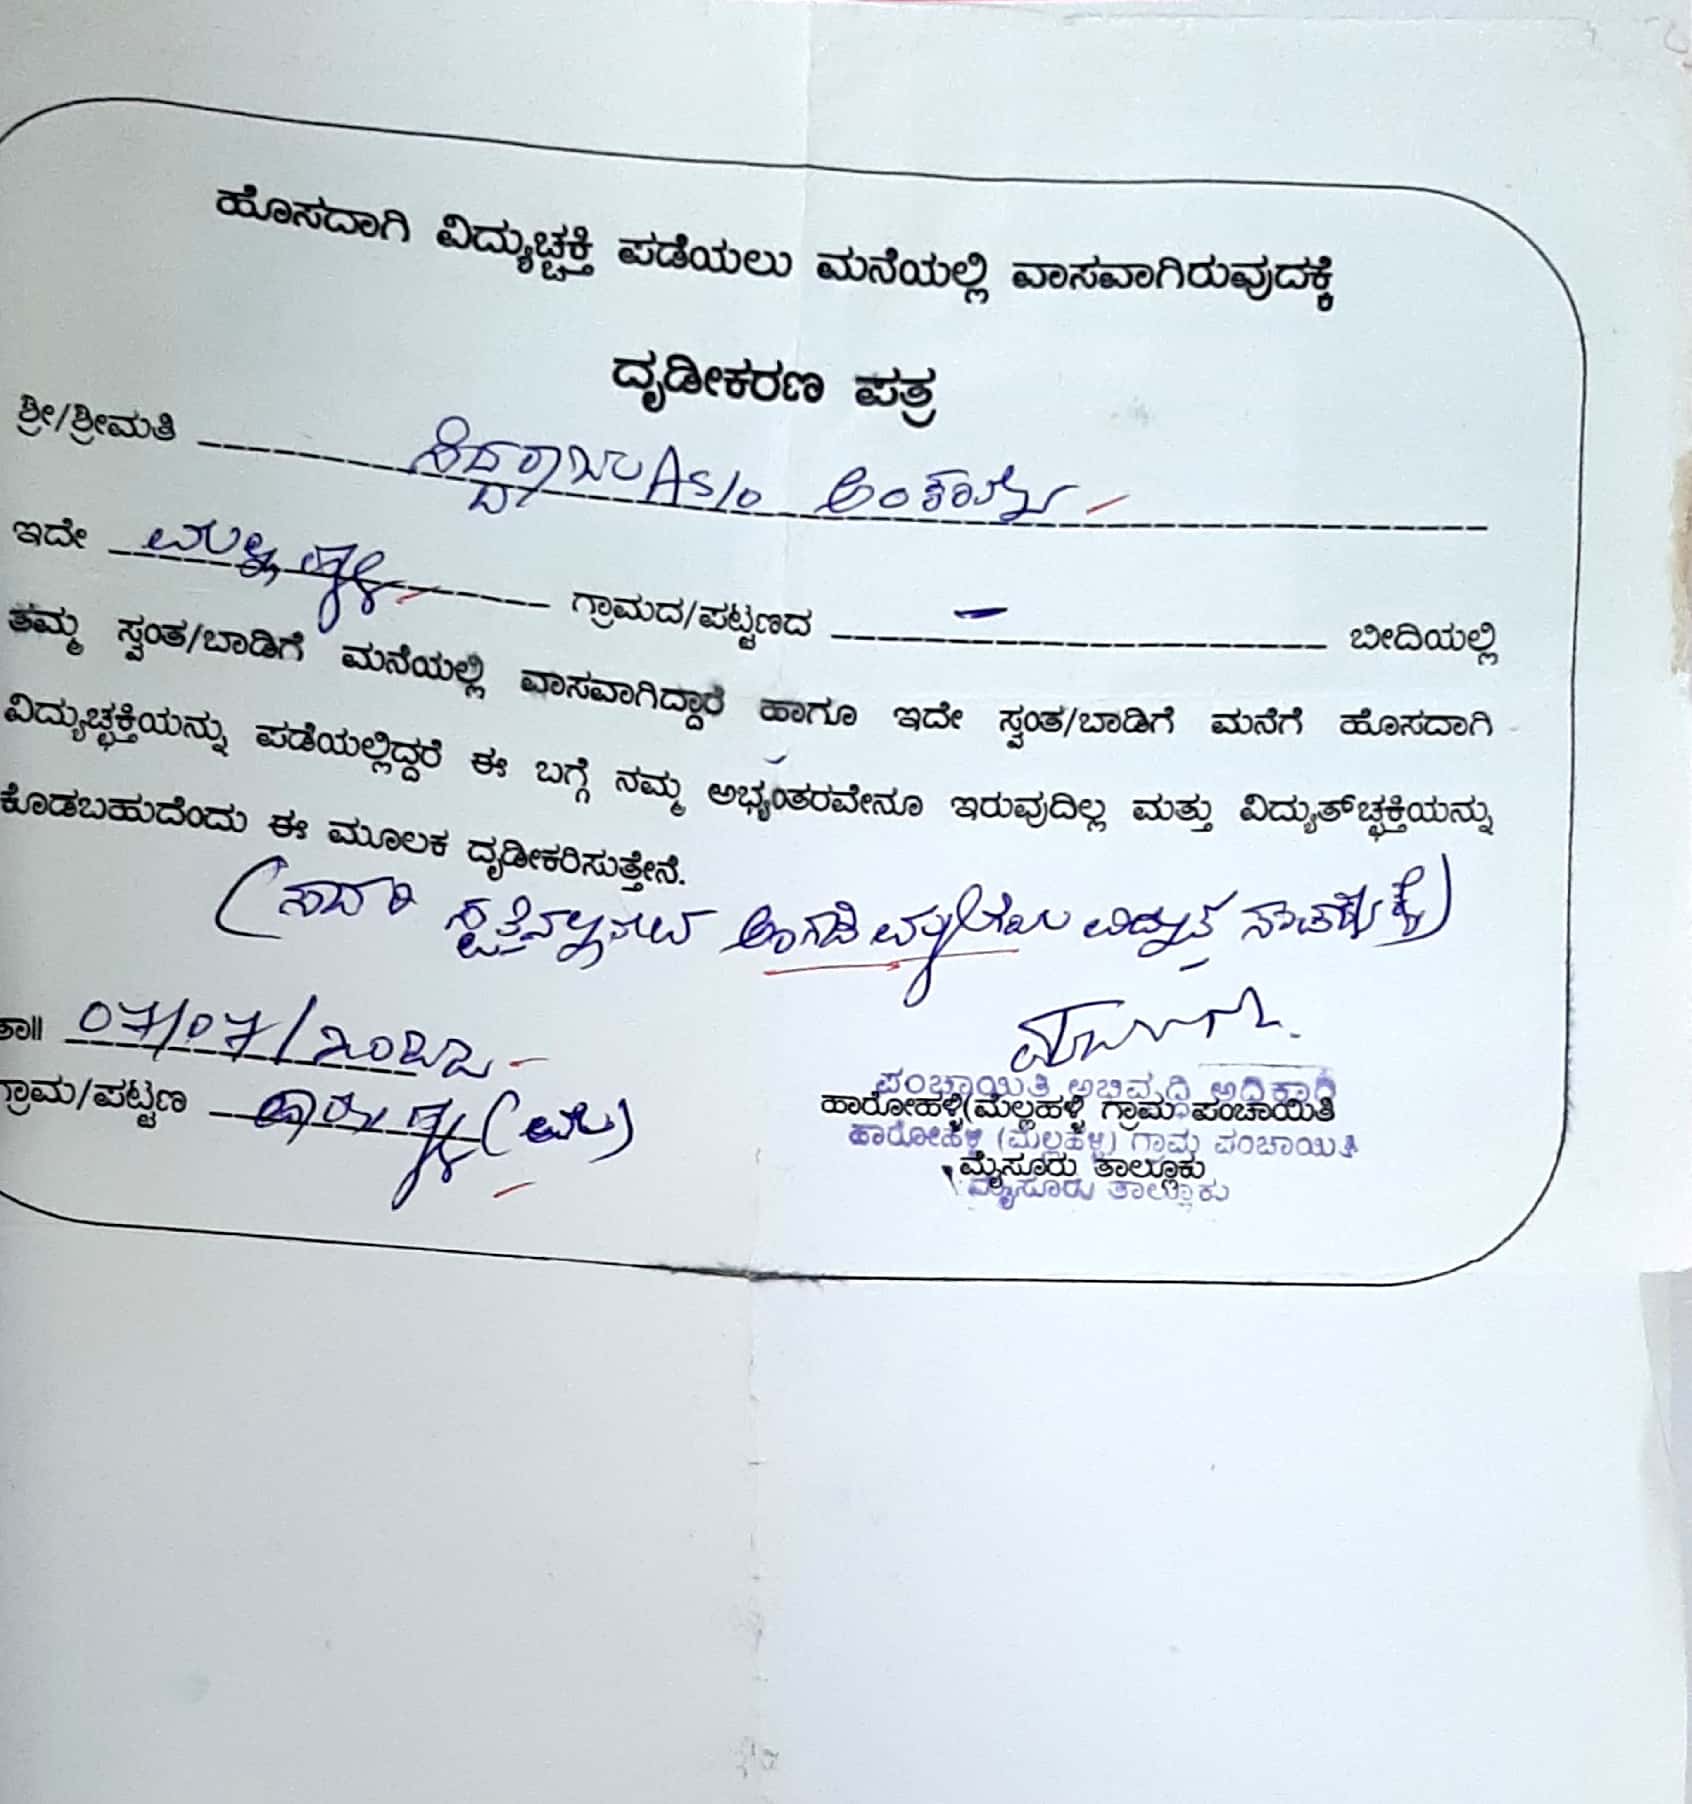 ಹೊಸದಾಗಿ ವಿದ್ಯುಚ್ಚಕ್ತಿ ಪಡೆಯಲು ಮನೆಯಲ್ಲಿ ವಾಸವಾಗಿರುವುದಕ್ಕೆ
ದೃಡೀಕರಣ ಪತ್ರ
ಶ್ರೀ/ಶ್ರೀಮತಿ ಸಿದ್ದರಾಜು A S/o
ಇದೇ ಮಲ್ಲಹಳ್ಳಿ ಗ್ರಾಮದ/ಪಟ್ಟಣದ - ಬೀದಿಯಲ್ಲಿ
ತಮ್ಮ ಸ್ವಂತ/ಬಾಡಿಗೆ ಮನೆಯಲ್ಲಿ ವಾಸವಾಗಿದ್ದಾರೆ ಹಾಗೂ ಇದೇ ಸ್ವಂತ/ಬಾಡಿಗೆ ಮನೆಗೆ ಹೊಸದಾಗಿ
ವಿದ್ಯುಚ್ಛಕ್ತಿಯನ್ನು ಪಡೆಯಲ್ಲಿದ್ದರೆ ಈ ಬಗ್ಗೆ ನಮ್ಮ ಅಭ್ಯಂತರವೇನೂ ಇರುವುದಿಲ್ಲ ಮತ್ತು ವಿದ್ಯುತ್‌ಚ್ಛಕ್ತಿಯನ್ನು
ಕೊಡಬಹುದೆಂದು ಈ ಮೂಲಕ ದೃಡೀಕರಿಸುತ್ತೇನೆ.
(ಸದರಿ ಅಂಗಡಿ ಮಳಿಗೆಯ ವಿದ್ಯುತ್ ಸಂಪರ್ಕಕ್ಕೆ)
ತಾ॥ ೦೭/೦೭/೨೦೨೨
ಗ್ರಾಮ/ಪಟ್ಟಣ ಹಾರೋಹಳ್ಳಿ (ಮೆಲ)
ಪಂಚಾಯಿತಿ ಅಭಿವೃದ್ಧಿ ಅಧಿಕಾರಿ
ಹಾರೋಹಳ್ಳಿ(ಮೆಲ್ಲಹಳ್ಳಿ ಗ್ರಾಮ ಪಂಚಾಯಿತಿ
ಹಾರೋಹಳ್ಳಿ (ಮೆಲ್ಲಹಳ್ಳಿ) ಗ್ರಾಮ ಪಂಚಾಯಿತಿ
ಮೈಸೂರು ತಾಲ್ಲೂಕು
ಮೈಸೂರು ತಾಲ್ಲೂಕು